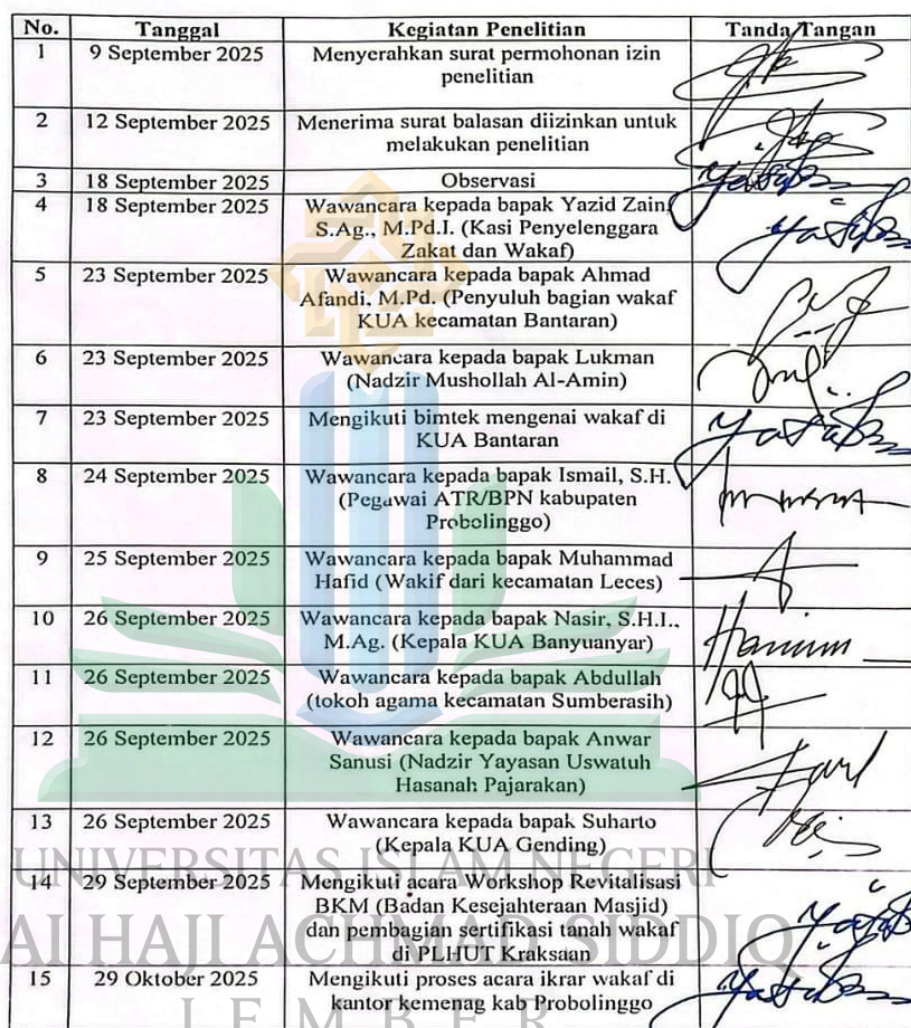 No. Tanggal Kegiatan Penelitian Tanda Tangan
1 9 September 2025 Menyerahkan surat permohonan izin
penelitian
2 12 September 2025 Menerima surat balasan diizinkan untuk
melakukan penelitian
3 18 September 2025 Observasi
4 18 September 2025 Wawancara kepada bapak Yazid Zain,
S.Ag., M.Pd.I. (Kasi Penyelenggara
Zakat dan Wakaf)
5 23 September 2025 Wawancara kepada bapak Ahmad
Afandi, M.Pd. (Penyuluh bagian wakaf
KUA kecamatan Bantaran)
6 23 September 2025 Wawancara kepada bapak Lukman
(Nadzir Mushollah Al-Amin)
7 23 September 2025 Mengikuti bimtek mengenai wakaf di
KUA Bantaran
8 24 September 2025 Wawancara kepada bapak Ismail, S.H.
(Pegawai ATR/BPN kabupaten
Probolinggo)
9 25 September 2025 Wawancara kepada bapak Muhammad
Hafid (Wakif dari kecamatan Leces)
10 26 September 2025 Wawancara kepada bapak Nasir, S.H.I.,
M.Ag. (Kepala KUA Banyuanyar)
11 26 September 2025 Wawancara kepada bapak Abdullah
(tokoh agama kecamatan Sumberasih)
12 26 September 2025 Wawancara kepada bapak Anwar
Sanusi (Nadzir Yayasan Uswatuh
Hasanah Pajarakan)
13 26 September 2025 Wawancara kepada bapak Suharto
(Kepala KUA Gending)
UNIVERSITAS ISLAM NEGERI
14 29 September 2025 Mengikuti acara Workshop Revitalisasi
BKM (Badan Kesejahteraan Masjid)
dan pembagian sertifikasi tanah wakaf
di PLHUT Kraksaan
AI HAJI ACHMAD SIDDIQ
15 29 Oktober 2025 Mengikuti proses acara ikrar wakaf di
kantor kemenag kab Probolinggo
JEMBER